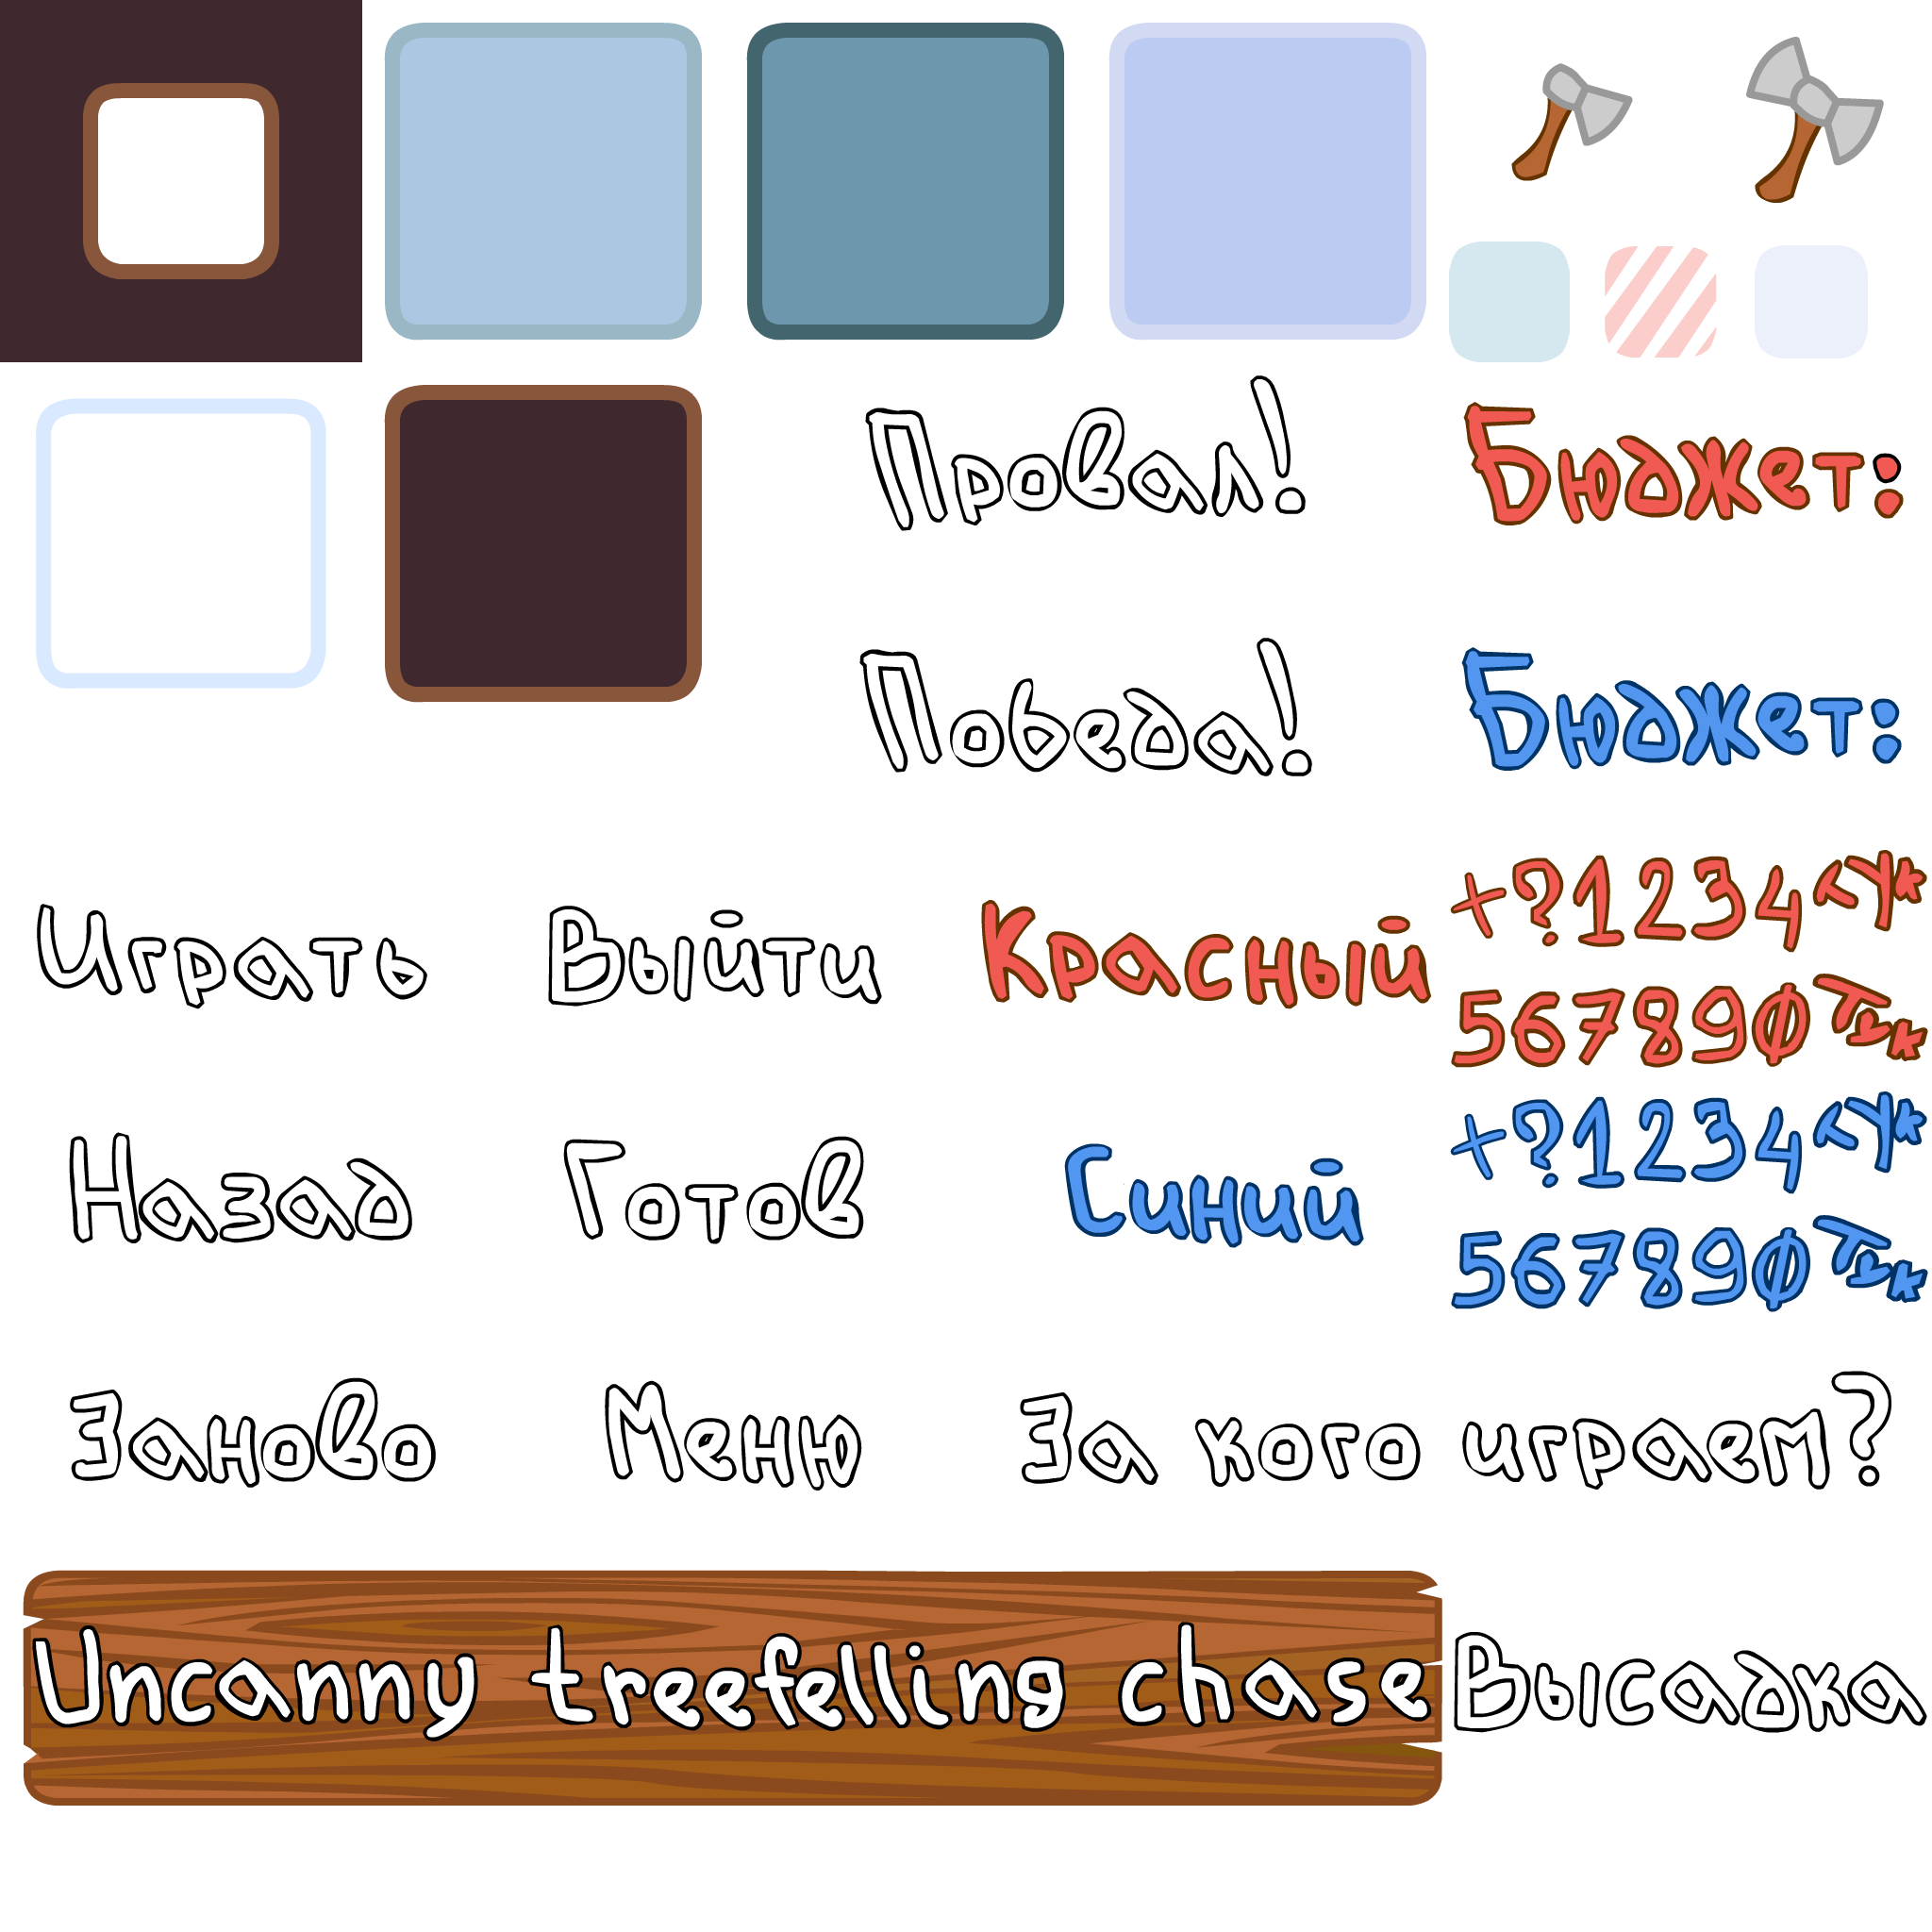 Провал! Бюджет:
Победа! Бюджет:
Играть Выйти Красный +?1234
567890
Назад Готов Синий +?1234
567890
Заново Меню За кого играем?
Uncanny treefelling chase Высадка